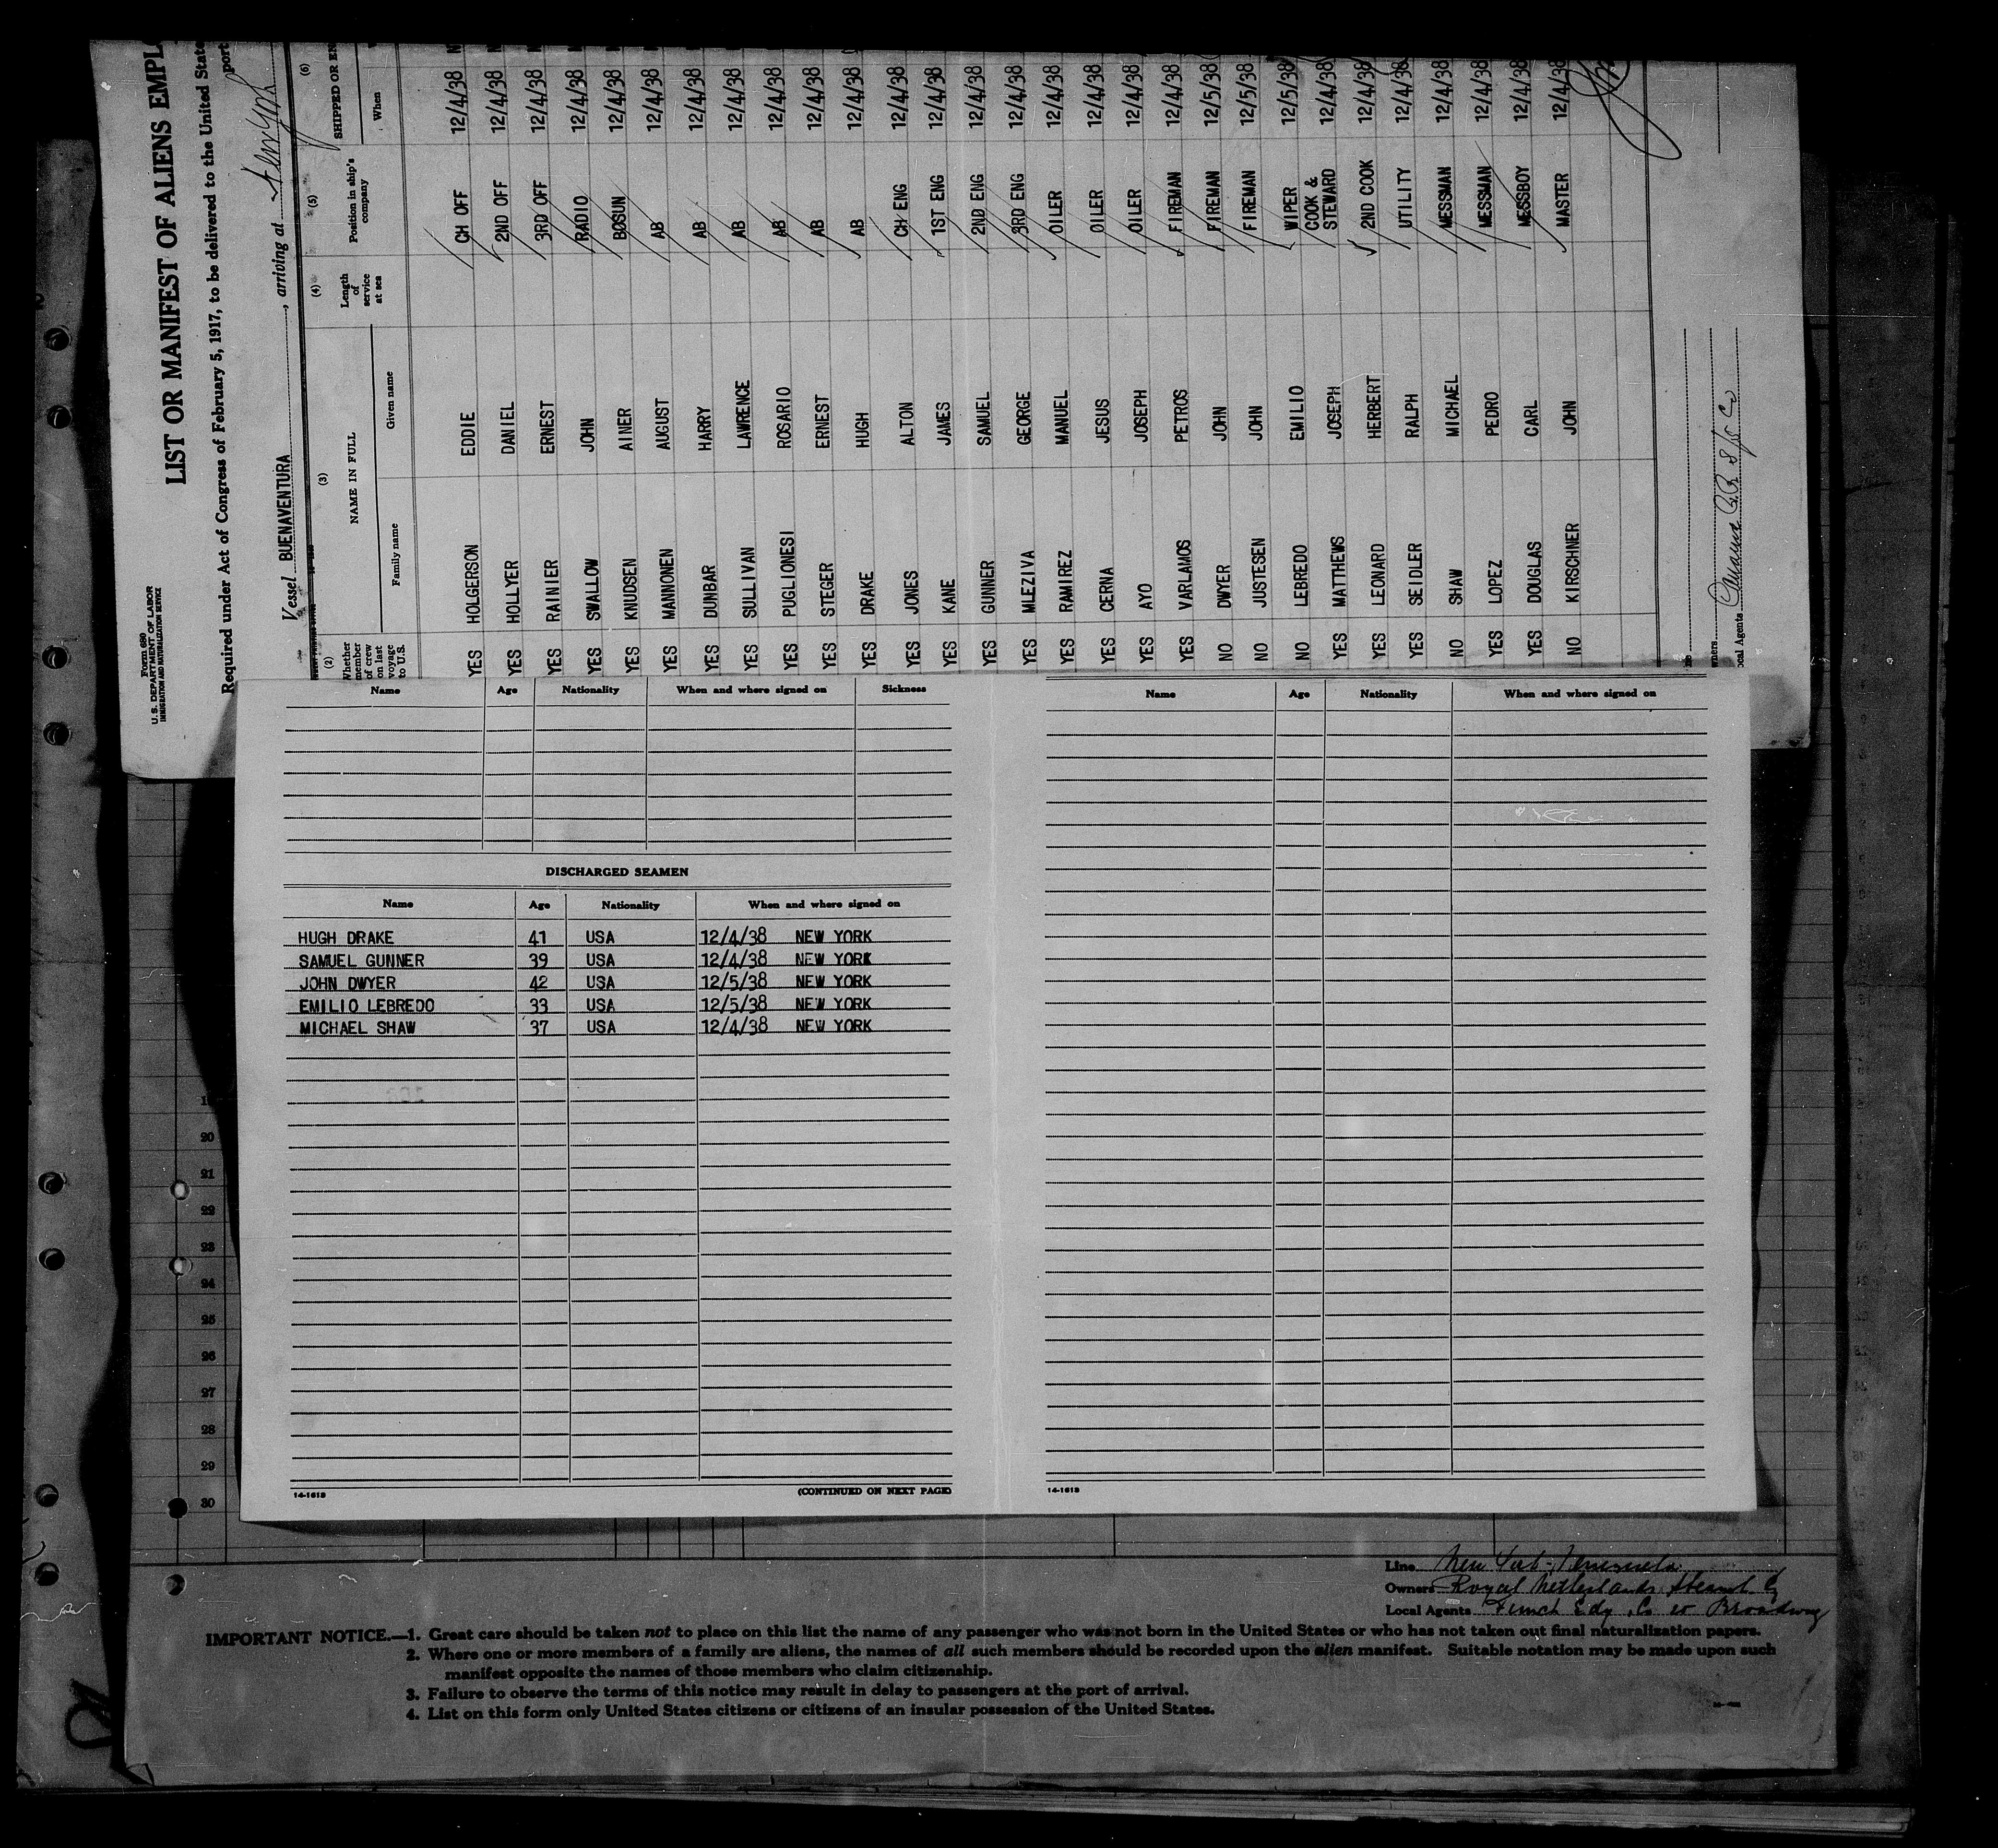 Form 680
U. S. DEPARTMENT OF LABOR
IMMIGRATION AND NATURALIZATION SERVICE
LIST OR MANIFEST OF ALIENS EMPL
Required under Act of Congress of February 5, 1917, to be delivered to the United State
port
Vessel BUENAVENTURA, arriving at New York
(2) (3) (4) (5) (6)
Whether member of crew on last voyage to U.S. NAME IN FULL Length of service at sea Position in ship's company SHIPPED OR EN
Family name Given name When
YES HOLGERSON EDDIE CH OFF 12/4/38
YES HOLLYER DANIEL 2ND OFF 12/4/38
YES RAINIER ERNEST 3RD OFF 12/4/38
YES SWALLOW JOHN RADIO 12/4/38
YES KNUDSEN AINER BOSUN 12/4/38
YES MANNONEN AUGUST AB 12/4/38
YES DUNBAR HARRY AB 12/4/38
YES SULLIVAN LAWRENCE AB 12/4/38
YES PUGLIONESI ROSARIO AB 12/4/38
YES STEGER ERNEST AB 12/4/38
YES DRAKE HUGH AB 12/4/38
YES JONES ALTON CH ENG 12/4/38
YES KANE JAMES 1ST ENG 12/4/38
YES GUNNER SAMUEL 2ND ENG 12/4/38
YES MLEZIVA GEORGE 3RD ENG 12/4/38
YES RAMIREZ MANUEL OILER 12/4/38
YES CERNA JESUS OILER 12/4/38
YES AYO JOSEPH OILER 12/4/38
YES VARLAMOS PETROS FIREMAN 12/4/38
NO DWYER JOHN FIREMAN 12/5/38
NO JUSTESEN JOHN FIREMAN 12/5/38
NO LEBREDO EMILIO WIPER 12/5/38
YES MATTHEWS JOSEPH COOK & STEWARD 12/4/38
YES LEONARD HERBERT 2ND COOK 12/4/38
YES SEIDLER RALPH UTILITY 12/4/38
NO SHAW MICHAEL MESSMAN 12/4/38
YES LOPEZ PEDRO MESSMAN 12/4/38
YES DOUGLAS CARL MESSBOY 12/4/38
NO KIRSCHNER JOHN MASTER 12/4/38
wners
ocal Agents Panama R.R. S/S Co
Name Age Nationality When and where signed on Sickness
DISCHARGED SEAMEN
Name Age Nationality When and where signed on
HUGH DRAKE 41 USA 12/4/38 NEW YORK
SAMUEL GUNNER 39 USA 12/4/38 NEW YORK
JOHN DWYER 42 USA 12/5/38 NEW YORK
EMILIO LEBREDO 33 USA 12/5/38 NEW YORK
MICHAEL SHAW 37 USA 12/4/38 NEW YORK
14-1618 (CONTINUED ON NEXT PAGE)
Name Age Nationality When and where signed on
14-1618
20
21
22
23
24
25
26
27
28
29
30
Line New York-Venezuela
Owners Royal Netherlands Steamb Co
Local Agents Funch Edy Co Broadway
IMPORTANT NOTICE.—1. Great care should be taken not to place on this list the name of any passenger who was not born in the United States or who has not taken out final naturalization papers.
2. Where one or more members of a family are aliens, the names of all such members should be recorded upon the alien manifest. Suitable notation may be made upon such
manifest opposite the names of those members who claim citizenship.
3. Failure to observe the terms of this notice may result in delay to passengers at the port of arrival.
4. List on this form only United States citizens or citizens of an insular possession of the United States.